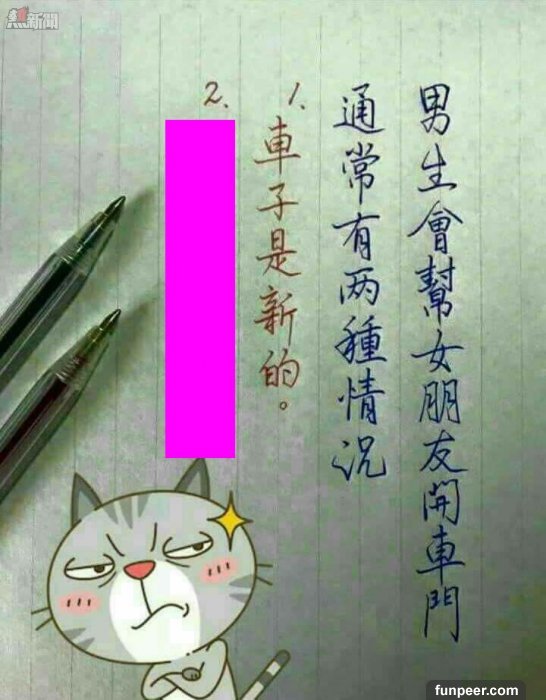 男生會幫女朋友開車門
通常有两種情況
1、車子是新的。
2、
焦新聞
funpeer.com